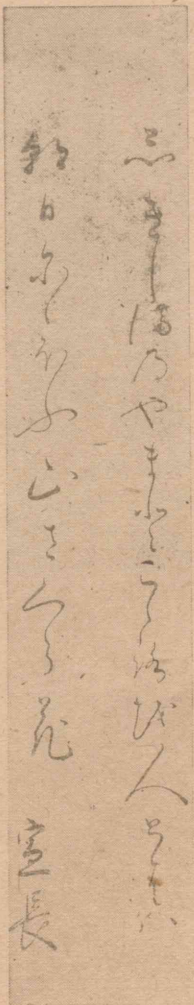 しきし満のやまとこゝろ越人とはゝ
朝日ににほふ山さくら花
宣長